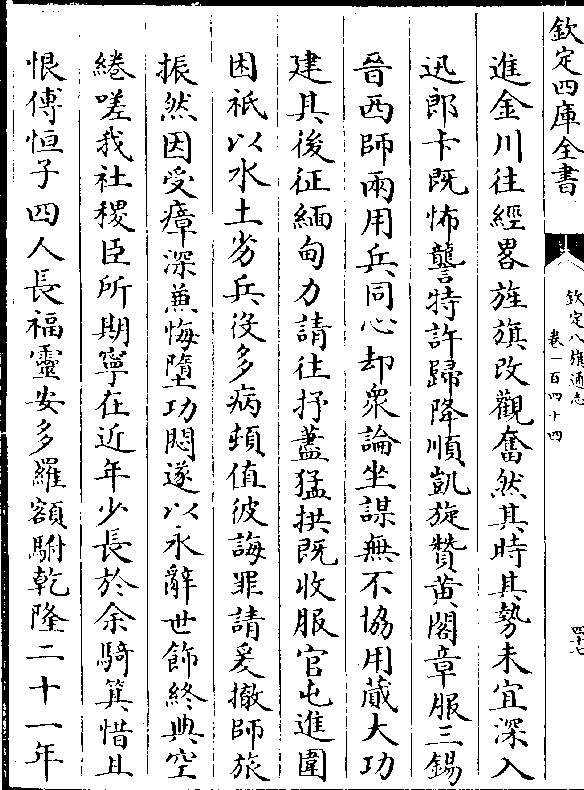 欽定四庫全書
欽定八旗通志
卷一百四十四
四十七
進金川往經畧旌旗改觀奮然其時其勢未宜深入
迅郎卡既怖讋特許歸降順凱旋贊黄閣章服三錫
晉西師兩用兵同心却衆論坐謀無不協用蕆大功
建其後征緬甸力請往抒藎猛拱既收服官屯進圍
困祇以水土劣兵没多病頓值彼誨罪請爰撤師旅
振然因受瘴深兼悔墮功悶遂以永辭世飾終典空
綣嗟我社稷臣所期寧在近年少長於余騎箕惜且
恨傅恒子四人長福靈安多羅額駙乾隆二十一年